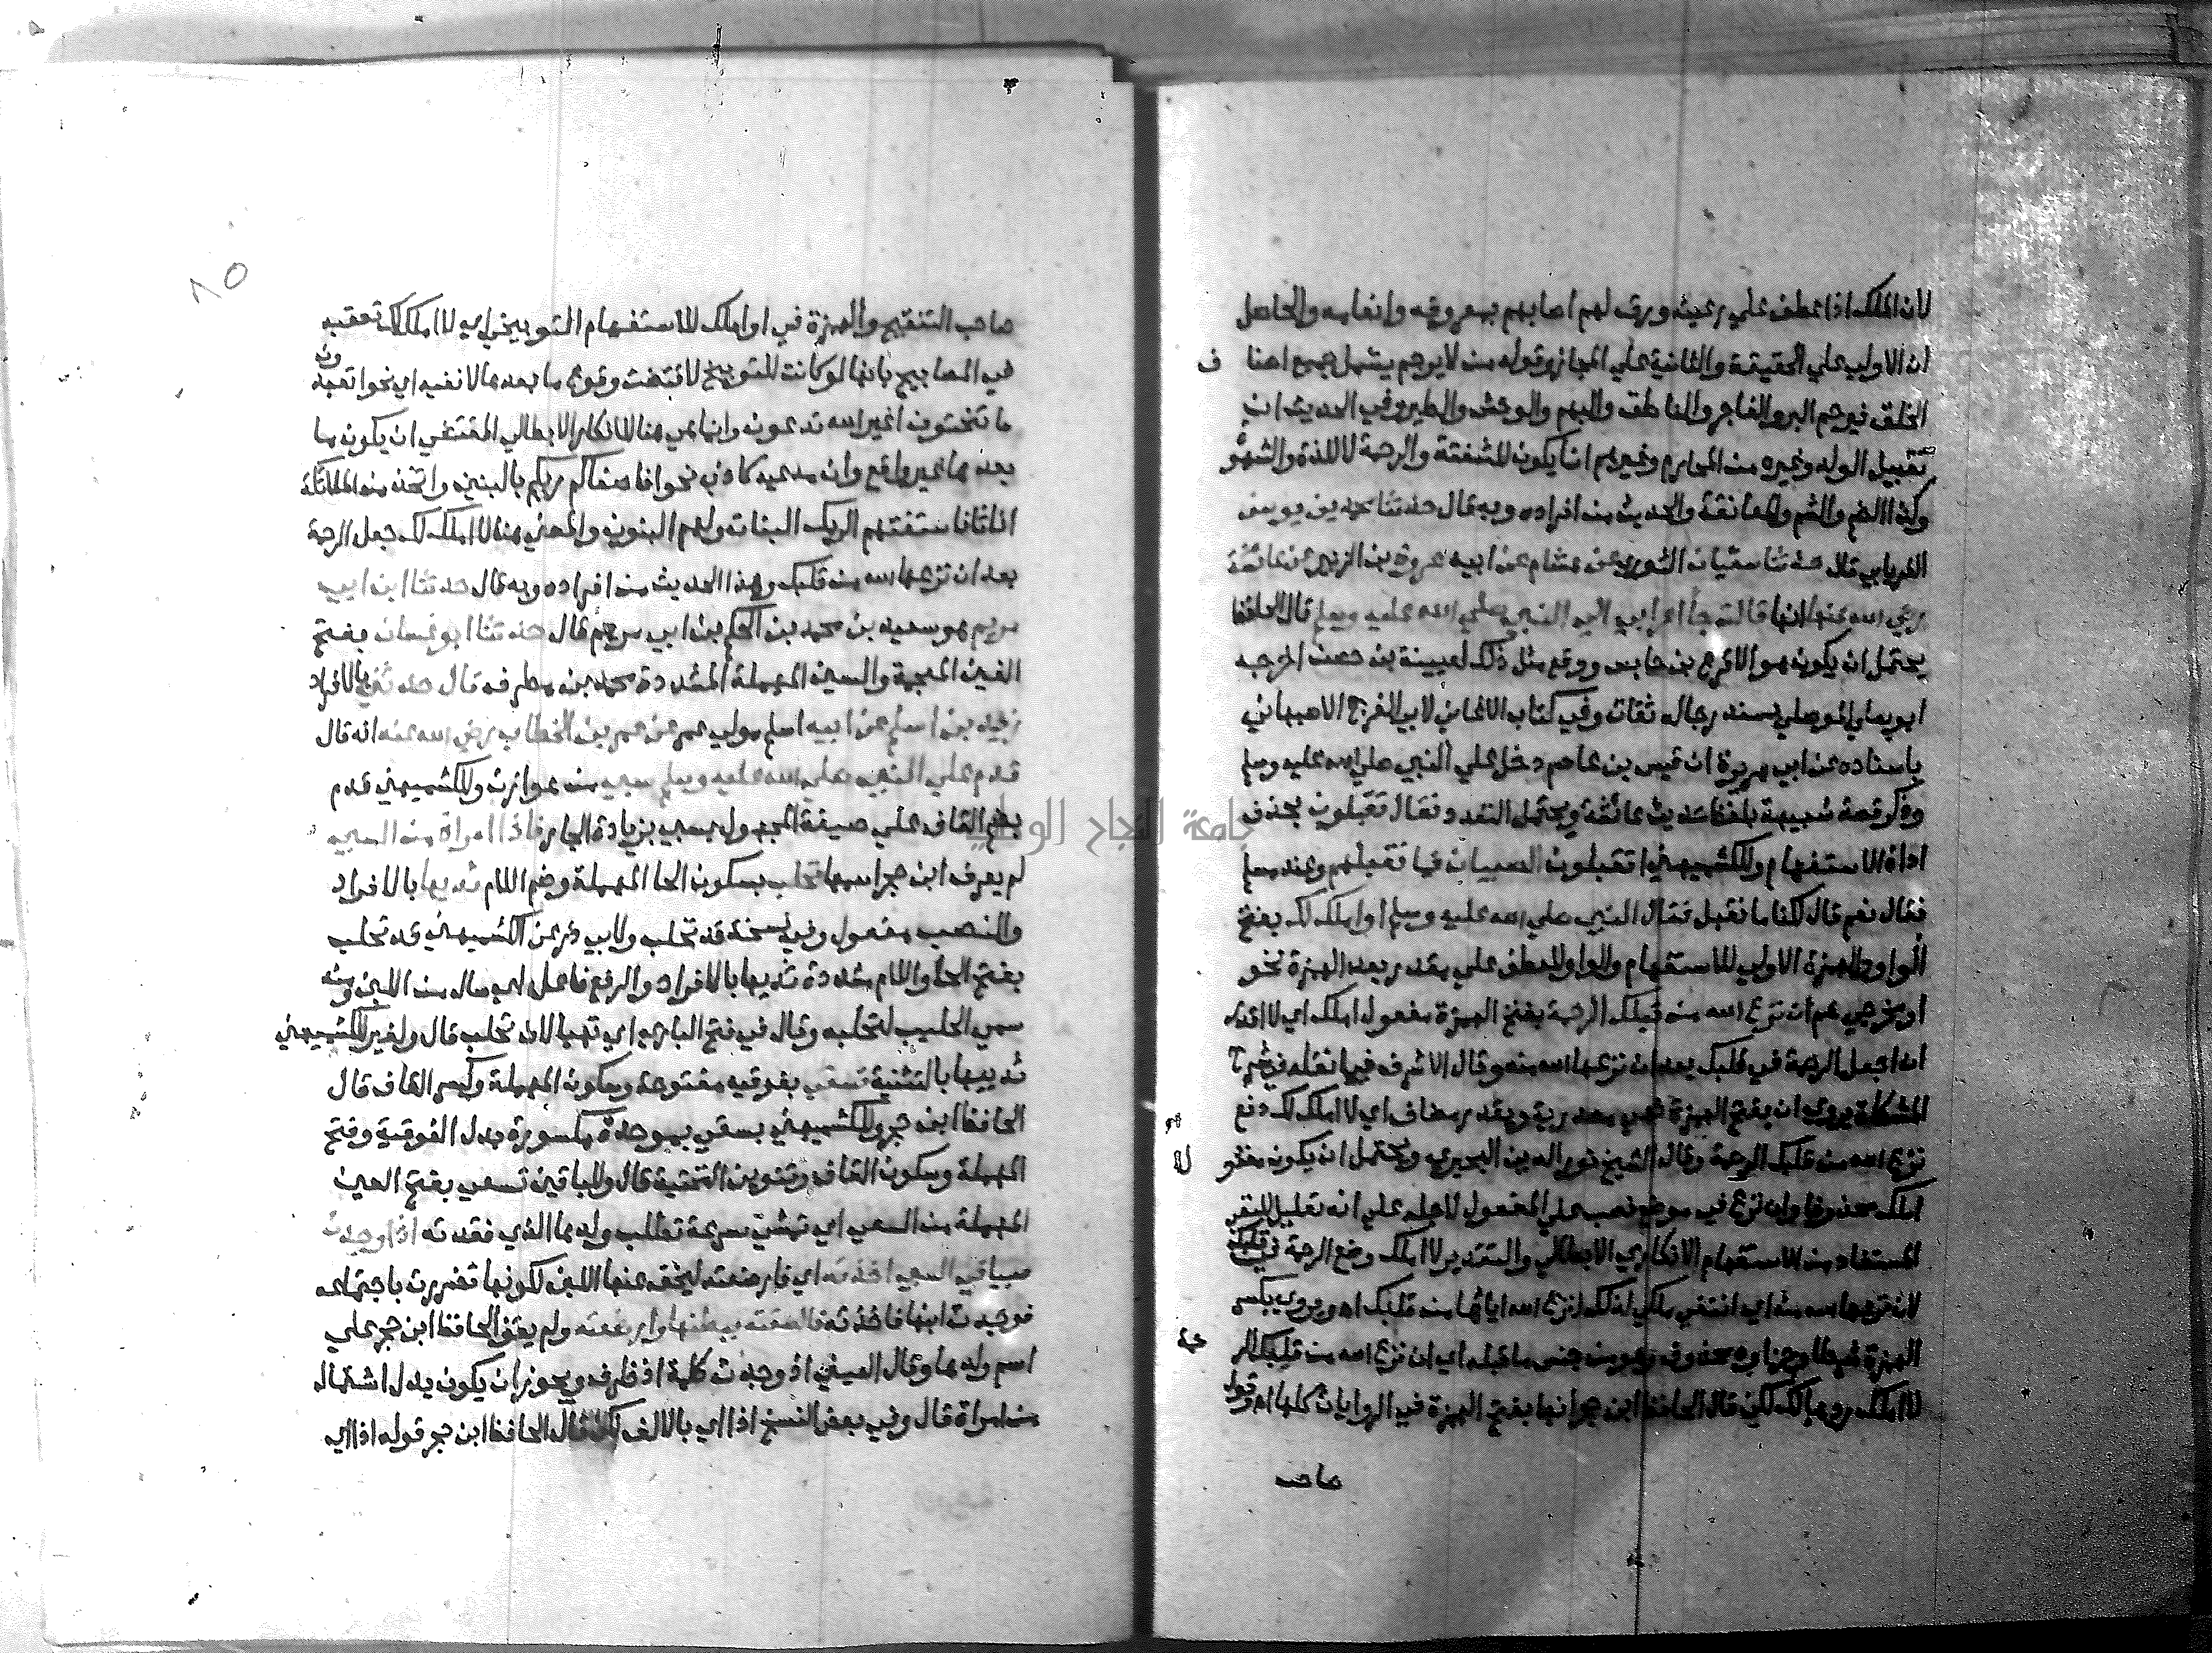 لان الملك اذا عطف علي رعيته ورق لهم اصابهم بمعروفه وانعامه والحاصل
ان الاولي علي الحقيقة والثانية علي المجاز وقوله من لا يرحم يشمل جميع اصنا ف
الخلق فيرحم البر والفاجر والناطق والبهم والوحش والطير وفي الحديث ان
تقبيل الولد وغيره من المحارم وغيرهم انما يكون للشفقة والرحمة لا للذة والشهوة
وكذا الضم والشم والمعانقة والحديث من افراده وبه قال حدثنا محمد بن يوسف
الفريابي قال حدثنا سفيان الثوري عن هشام عن ابيه عروة بن الزبير عن عائشة
رضي الله عنها انها قالت جا اعرابي الي النبي صلي الله عليه وسلم قال الحافظ
يحتمل ان يكون هو الاقرع بن حابس ووقع مثل ذلك لعيينة بن حصن اخرجه
ابو يعلي الموصلي بسند رجاله ثقات وفي كتاب الاغاني لابي الفرج الاصبهاني
باسناده عن ابي هريرة ان قيس بن عاصم دخل علي النبي صلي الله عليه وسلم
وذكر قصة شبيهة بلفظ حديث عائشة ويحتمل التعدد فقال تقبلون بحذف
اداة الاستفهام وللكشميهني اتقبلون الصبيان فما نقبلهم وعند مسلم
فقال نعم قال لكنا ما نقبل فقال النبي صلي الله عليه وسلم اواملك لك بفتح
الواو والهمزة الاولي للاستفهام والواو للعطف علي مقدر بعد الهمزة نحو
او مخرجي هم ان نزع الله من قبلك الرحمة بفتح الهمزة مفعول املك اي لا اقدر
ان اجعل الرحمة في قلبك بعد ان نزعها الله منه وقال الاشرف فيما نقله في شرح
المشكاة يروي ان بفتح الهمزة فهي مصدرية ويقدر مضاف اي لا املك لك دفع
نزع الله من قلبك الرحمة وقال الشيخ نور الدين البحيري ويحتمل ان يكون مفعو ل
املك محذوفا وان نزع في موضع نصب علي المفعول لاجله علي انه تعليل للنفي
المستفاد من الاستفهام الانكاري الابطالي والتقدير لا املك وضع الرحمة في قلبك
لان نزعها الله منه اي انتفي ملكي لذلك لنزع الله اياها من قلبك اه ويروي بكسر
الهمزة شرطا وجزاوه محذوف وهو من جنس ما قبله اي ان نزع الله من قلبك الر حمة
لا املك ردها لك لكن قال الحافظ ابن حجر انها بفتح الهمزة في الروايات كلها اه وقول
صاحب
صاحب التنقيح والهمزة في اواملك للاستفهام التوبيخي اي لا املك لك تعقبه
في المصابيح بانها لو كانت للتوبيخ لاقتضت وقوع ما بعدها لا نفيه اي نحو اتعبدون
ما تنحتون اغير الله تدعون وانما هي هنا للانكار الابطالي المقتضي ان يكون ما
بعدها غير واقع وان مدعيه كاذب نحو افاصفاكم ربكم بالبنين واتخذ من الملائكة
اناثا فاستفتهم الربك البنات ولهم البنون والمعني هنا لا املك لك جعل الرحمة
بعد ان نزعها الله من قلبك وهذا الحديث من افراده وبه قال حدثنا ابن ابي
مريم هو سعيد بن محمد بن الحكم بن ابي مريم قال حدثنا ابو غسان بفتح
الغين المعجمة والسين المهملة المشددة محمد بن مطرف قال حدثني بالافراد
زيد بن اسلم عن ابيه اسلم مولي عمر عن عمر بن الخطاب رضي الله عنه انه قال
قدم علي النبي صلي الله عليه وسلم سبي من هوازن وللكشميهني قدم
بضم القاف علي صيغة المجهول بسبي بزيادة الجار فاذا امراة من السبي
لم يعرف ابن حجر اسمها تحلب بسكون الحا المهملة وضم اللام ثديها بالافراد
والنصب مفعول وفي نسخة قد تحلب ولابي ذر عن الكشميهني قد تحلب
بفتح الحا واللام مشددة ثديها بالافراد والرفع فاعل اي سال منه اللبن ومنه
سمي الحليب لتحلبه وقال في فتح الباري اي تهيا لان تحلب قال ولغير الكشميهني
ثدييها بالتثنية تسقي بفوقيه مفتوحة وسكون المهملة وكسر القاف قال
الحافظ ابن حجر وللكشميهني بسقي بموحدة مكسورة بدل الفوقية وفتح
المهملة وسكون القاف وتنوين التحتية قال وللباقين تسعي بفتح العين
المهملة من السعي اي تمشي بسرعة تطلب ولدها الذي فقدته اذا وجدت
صبيا في السبي اخذته اي فارضعته ليخف عنها اللبن لكونها تضررت باجتماعه
فوجدت ابنها فاخذته فالصقته ببطنها وارضعته ولم يقف الحافظ ابن حجر علي
اسم ولدها وقال العيني اذ وجدت كلمة اذ ظرف ويجوز ان يكون بدل اشتمال
من امراة قال وفي بعض النسخ اذا اي بالالف لكن قال الحافظ ابن حجر قوله اذا اي
٨٥
جامعة النجاح الوطنية